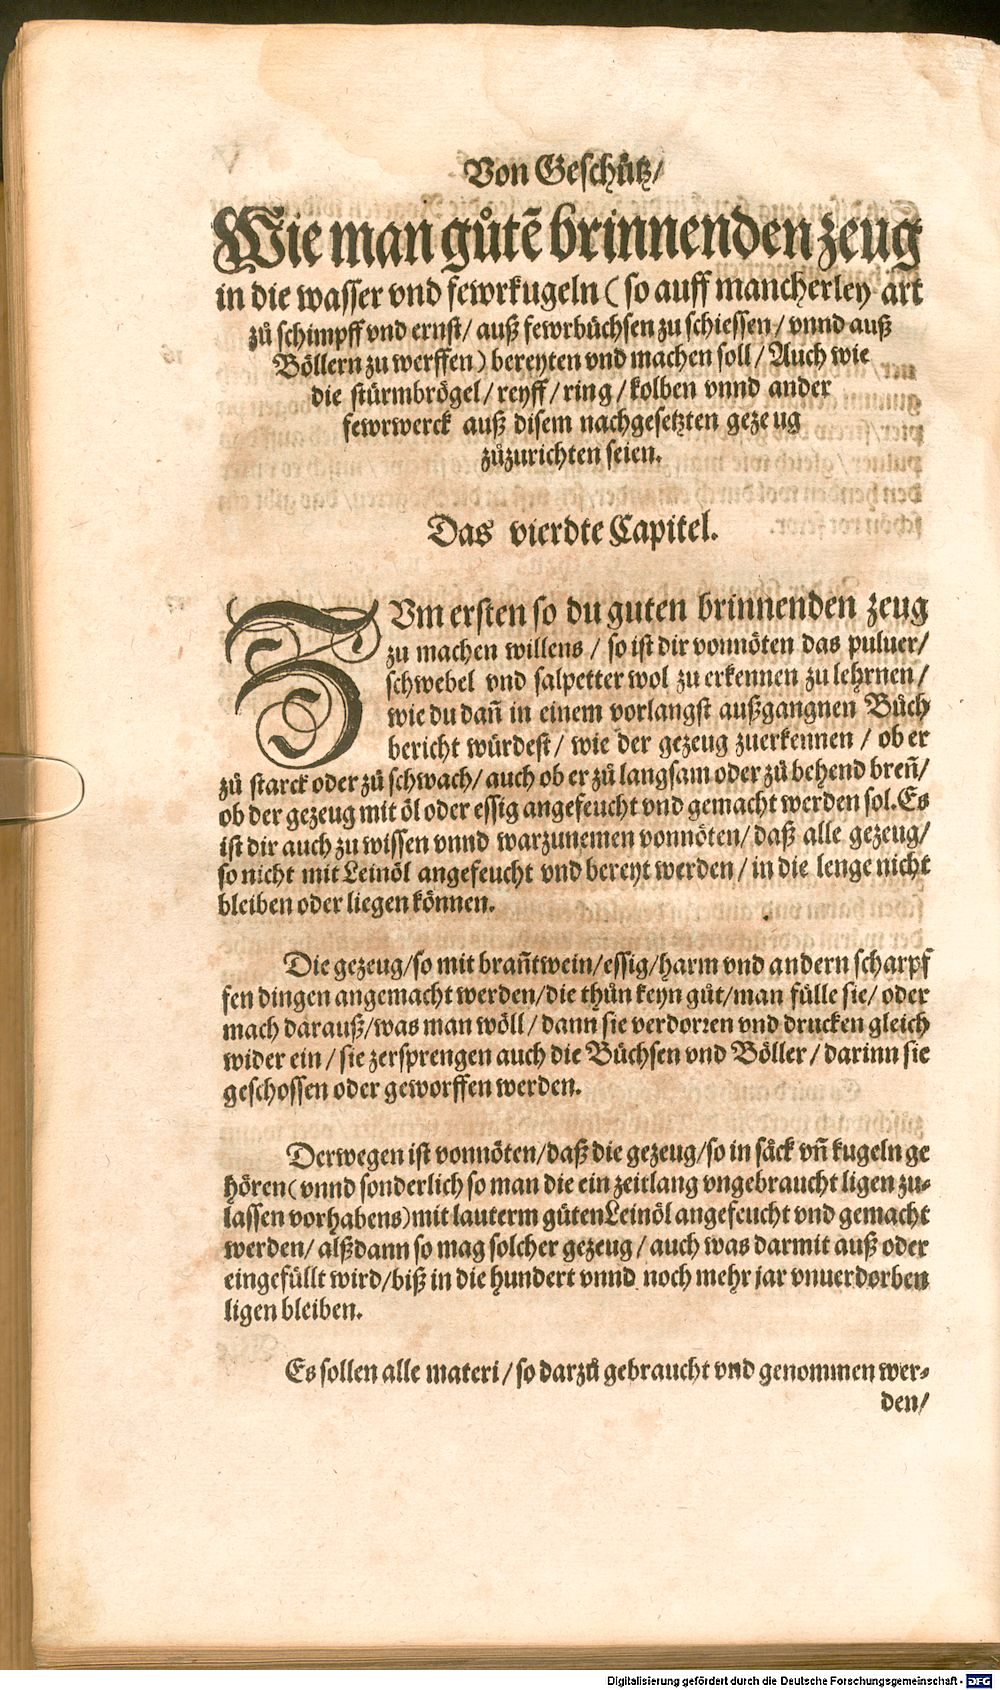 Von Geschütz/
Wie man gůtẽ brinnenden zeug
in die wasser vnd fewrkugeln (so auff mancherley art
zů schimpff vnd ernst/ auß fewrbüchsen zu schiessen/ vnnd auß
Böllern zu werffen) bereyten vnd machen soll/ Auch wie
die stürmbrögel/ reyff/ ring/ kolben vnnd ander
fewrwerck auß disem nachgesetzten gezeug
zůzurichten seien.
Das vierdte Capitel.
ZVm ersten so du guten brinnenden zeug
zu machen willens / so ist dir vonnöten das puluer/
schwebel vnd salpetter wol zu erkennen zu lehrnen /
wie du dañ in einem vorlangst außgangnen Bůch
bericht würdest/ wie der gezeug zuerkennen / ob er
zů starck oder zů schwach/ auch ob er zů langsam oder zů behend breñ/
ob der gezeug mit öl oder essig angefeucht vnd gemacht werden sol. Es
ist dir auch zu wissen vnnd warzunemen vonnöten/ daß alle gezeug/
so nicht mit Leinöl angefeucht vnd bereyt werden / in die lenge nicht
bleiben oder liegen können.
Die gezeug/so mit brañtwein/essig/harm vnd andern scharpf
fen dingen angemacht werden/die thůn keyn gůt/man fülle sie/ oder
mach darauß/was man wöll / dann sie verdorren vnd drucken gleich
wider ein / sie zersprengen auch die Büchsen vnd Böller / darinn sie
geschossen oder geworffen werden.
Derwegen ist vonnöten/daß die gezeug/so in säck vñ kugeln ge
hören(vnnd sonderlich so man die ein zeitlang vngebraucht ligen zu-
lassen vorhabens)mit lauterm gůten Leinöl angefeucht vnd gemacht
werden/ alßdann so mag solcher gezeug / auch was darmit auß oder
eingefüllt wird/biß in die hundert vnnd noch mehr jar vnuerdorben
ligen bleiben.
Es sollen alle materi / so darzů gebraucht vnd genommen wer-
den/
Digitalisierung gefördert durch die Deutsche Forschungsgemeinschaft - DFG